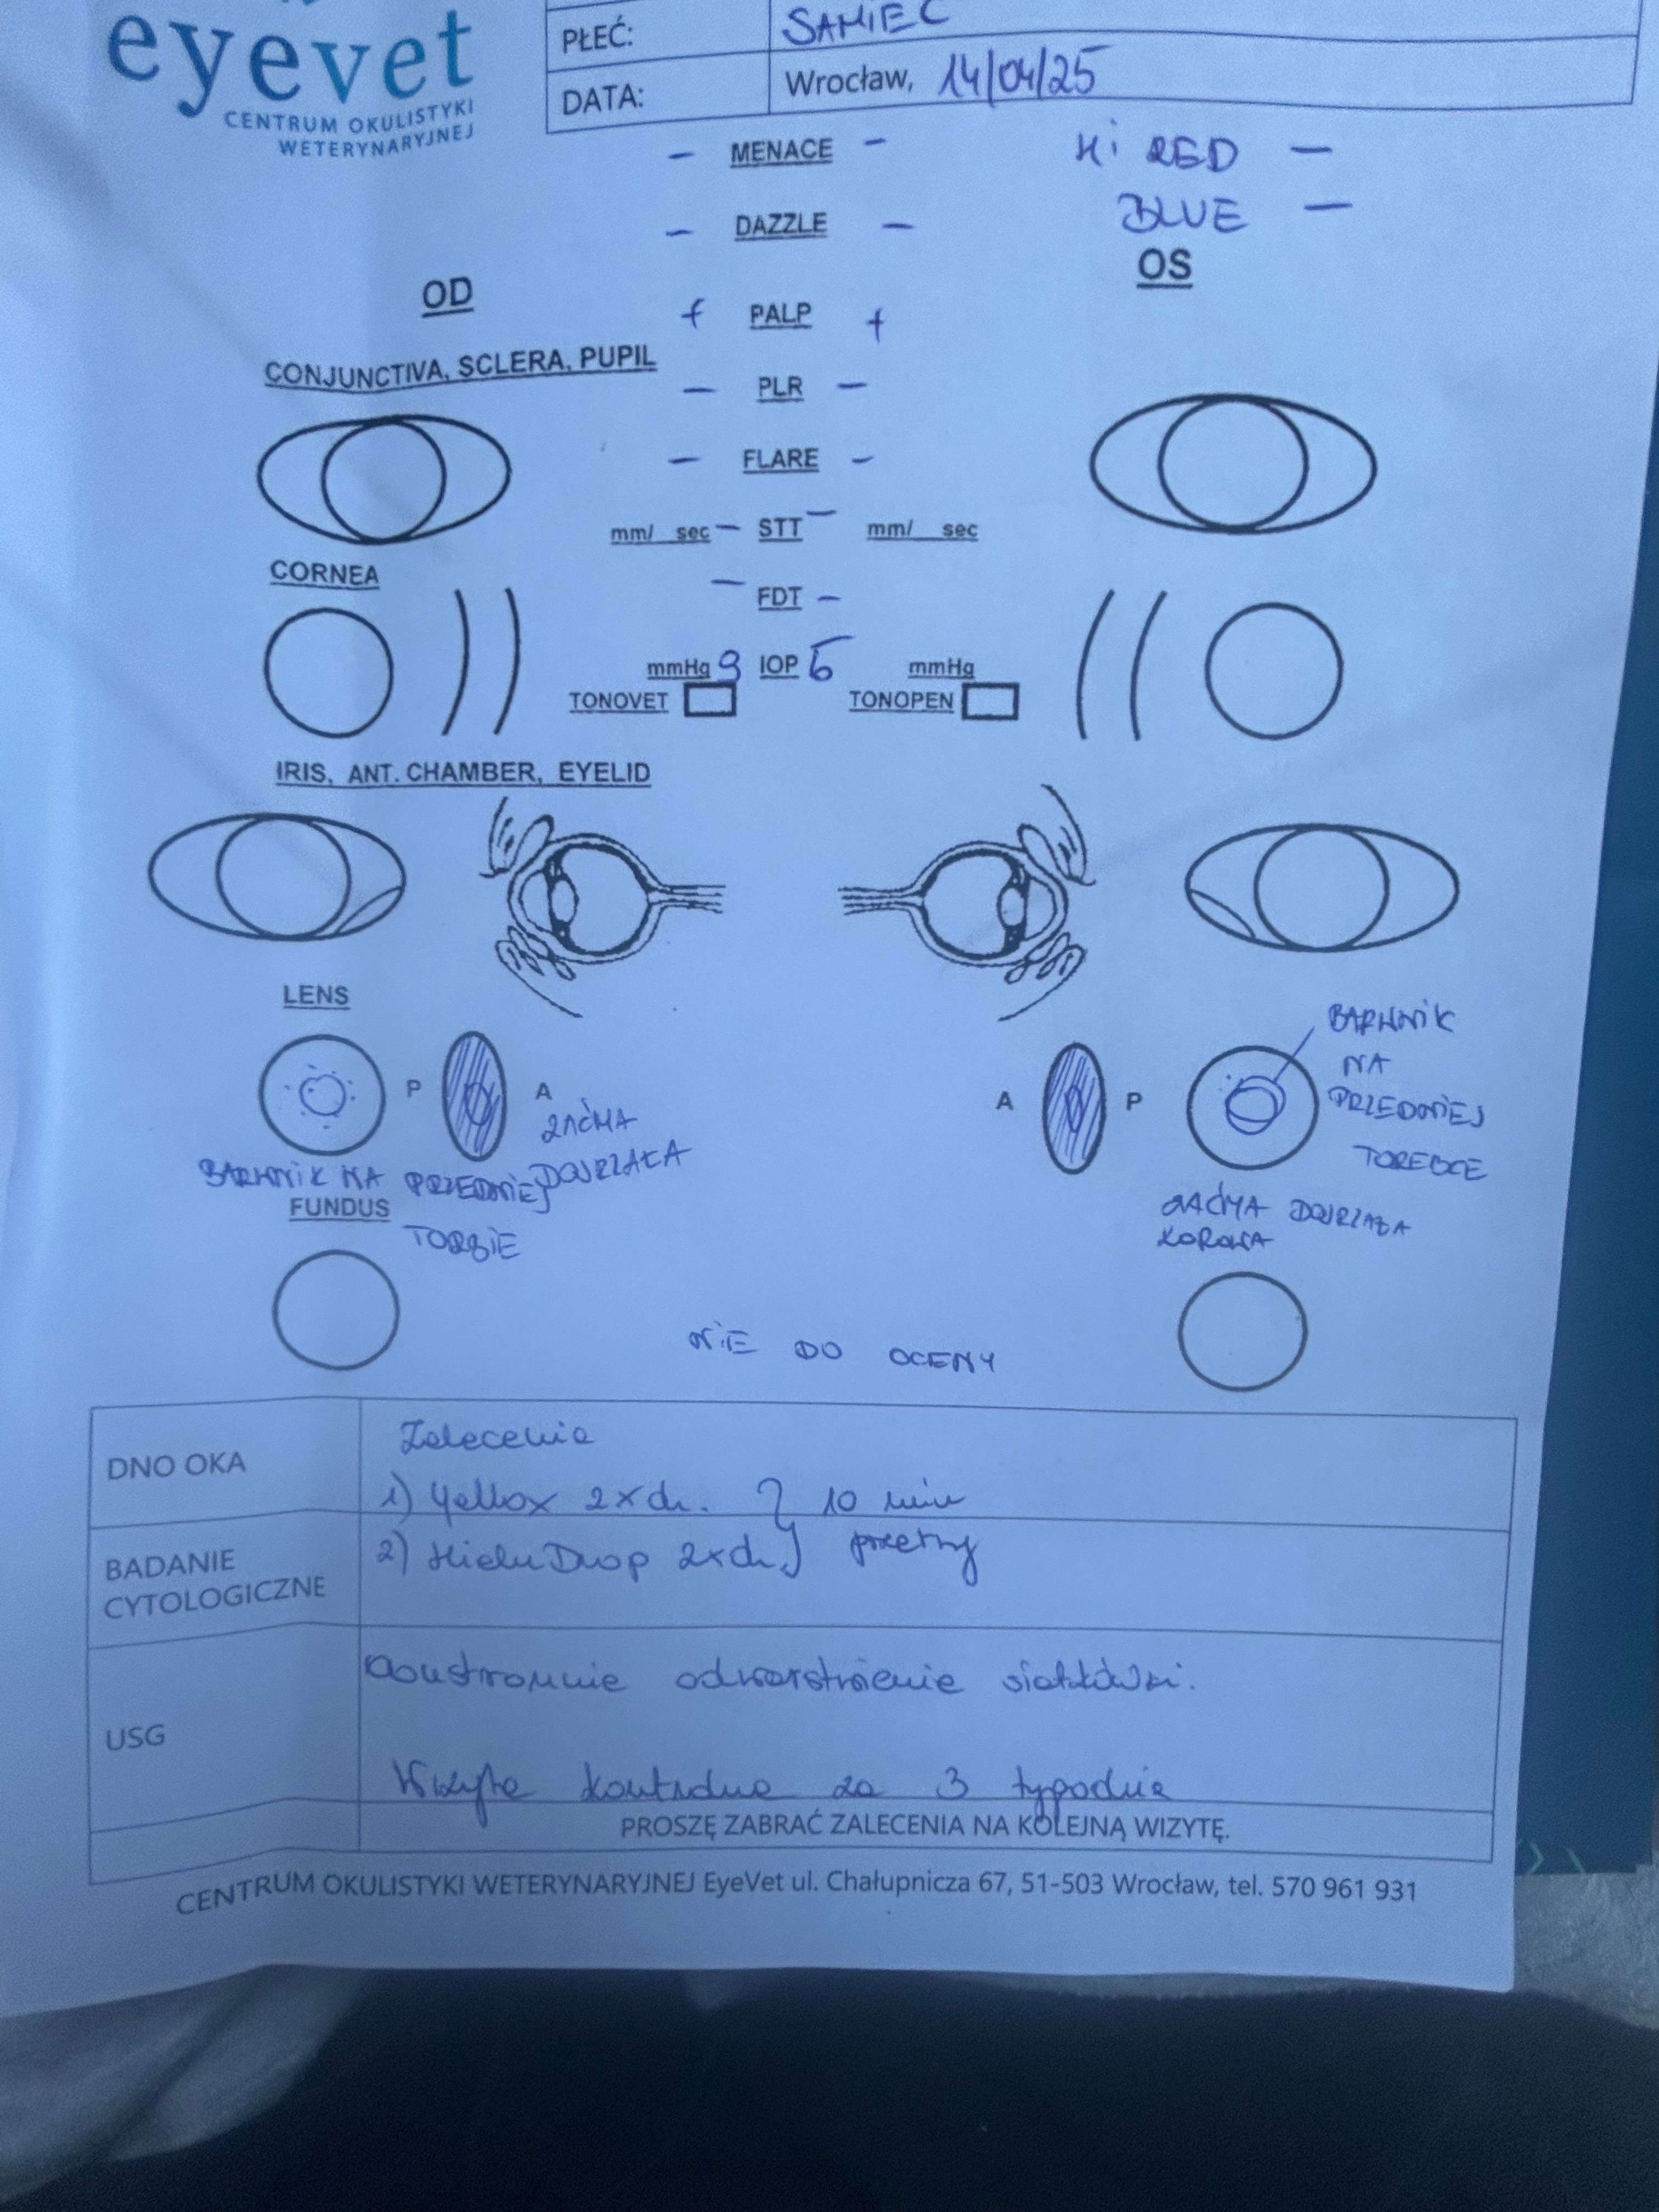 eyevet
CENTRUM OKULISTYKI
WETERYNARYJNEJ
PŁEĆ: SAMIEC
DATA: Wrocław, 14/04/25
- MENACE -
Hi RED -
BLUE -
- DAZZLE -
OD
OS
+ PALP +
CONJUNCTIVA, SCLERA, PUPIL
- PLR -
- FLARE -
mm/ sec - STT - mm/ sec
CORNEA
- FDT -
mmHg 9 IOP 6 mmHg
TONOVET TONOPEN
IRIS, ANT. CHAMBER, EYELID
LENS
P A
ZAĆMA
DOJRZAŁA
BARWNIK NA PRZEDNIEJ
TORBIE
A P
BARWNIK
NA
PRZEDNIEJ
TOREBCE
ZAĆMA DOJRZAŁA
KOROWA
FUNDUS
NIE DO OCENY
DNO OKA
Zalecenia
1) Yellox 2xdz. } 10 min
BADANIE
CYTOLOGICZNE
2) 2xdz. } przerwy
USG
Obustronne odwarstwienie siatkówki.
Wizyta kontrolna za 3 tygodnie
PROSZĘ ZABRAĆ ZALECENIA NA KOLEJNĄ WIZYTĘ.
CENTRUM OKULISTYKI WETERYNARYJNEJ EyeVet ul. Chałupnicza 67, 51-503 Wrocław, tel. 570 961 931